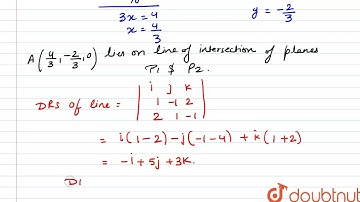 3x = 4
x = 4/3
y = -2/3
A(4/3, -2/3, 0) lies on line of intersection of planes
P1 & P2.
DRs of line = | i j k |
| 1 -1 2 |
| 2 1 -1 |
= i(1-2) - j(-1-4) + k(1+2)
= -i + 5j + 3k.
doubtnut